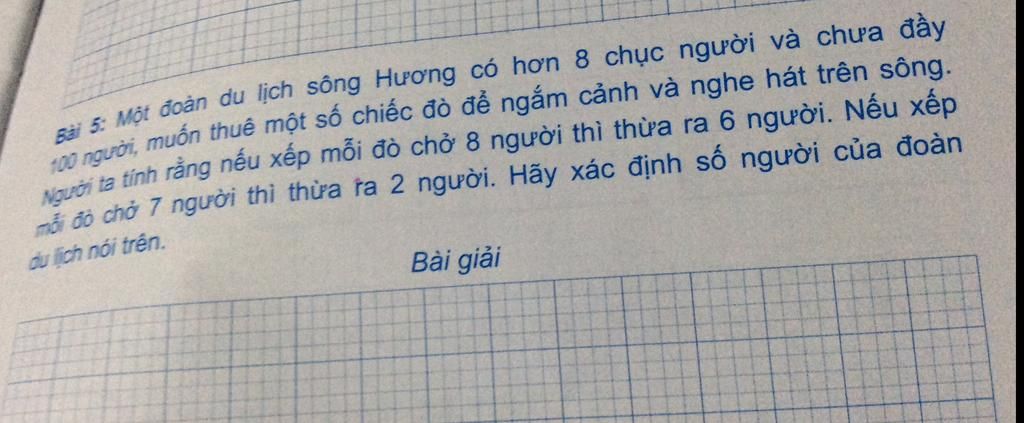 Bài 5: Một đoàn du lịch sông Hương có hơn 8 chục người và chưa đầy
100 người, muốn thuê một số chiếc đò để ngắm cảnh và nghe hát trên sông.
Người ta tính rằng nếu xếp mỗi đò chở 8 người thì thừa ra 6 người. Nếu xếp
mỗi đò chở 7 người thì thừa ra 2 người. Hãy xác định số người của đoàn
du lịch nói trên.
Bài giải